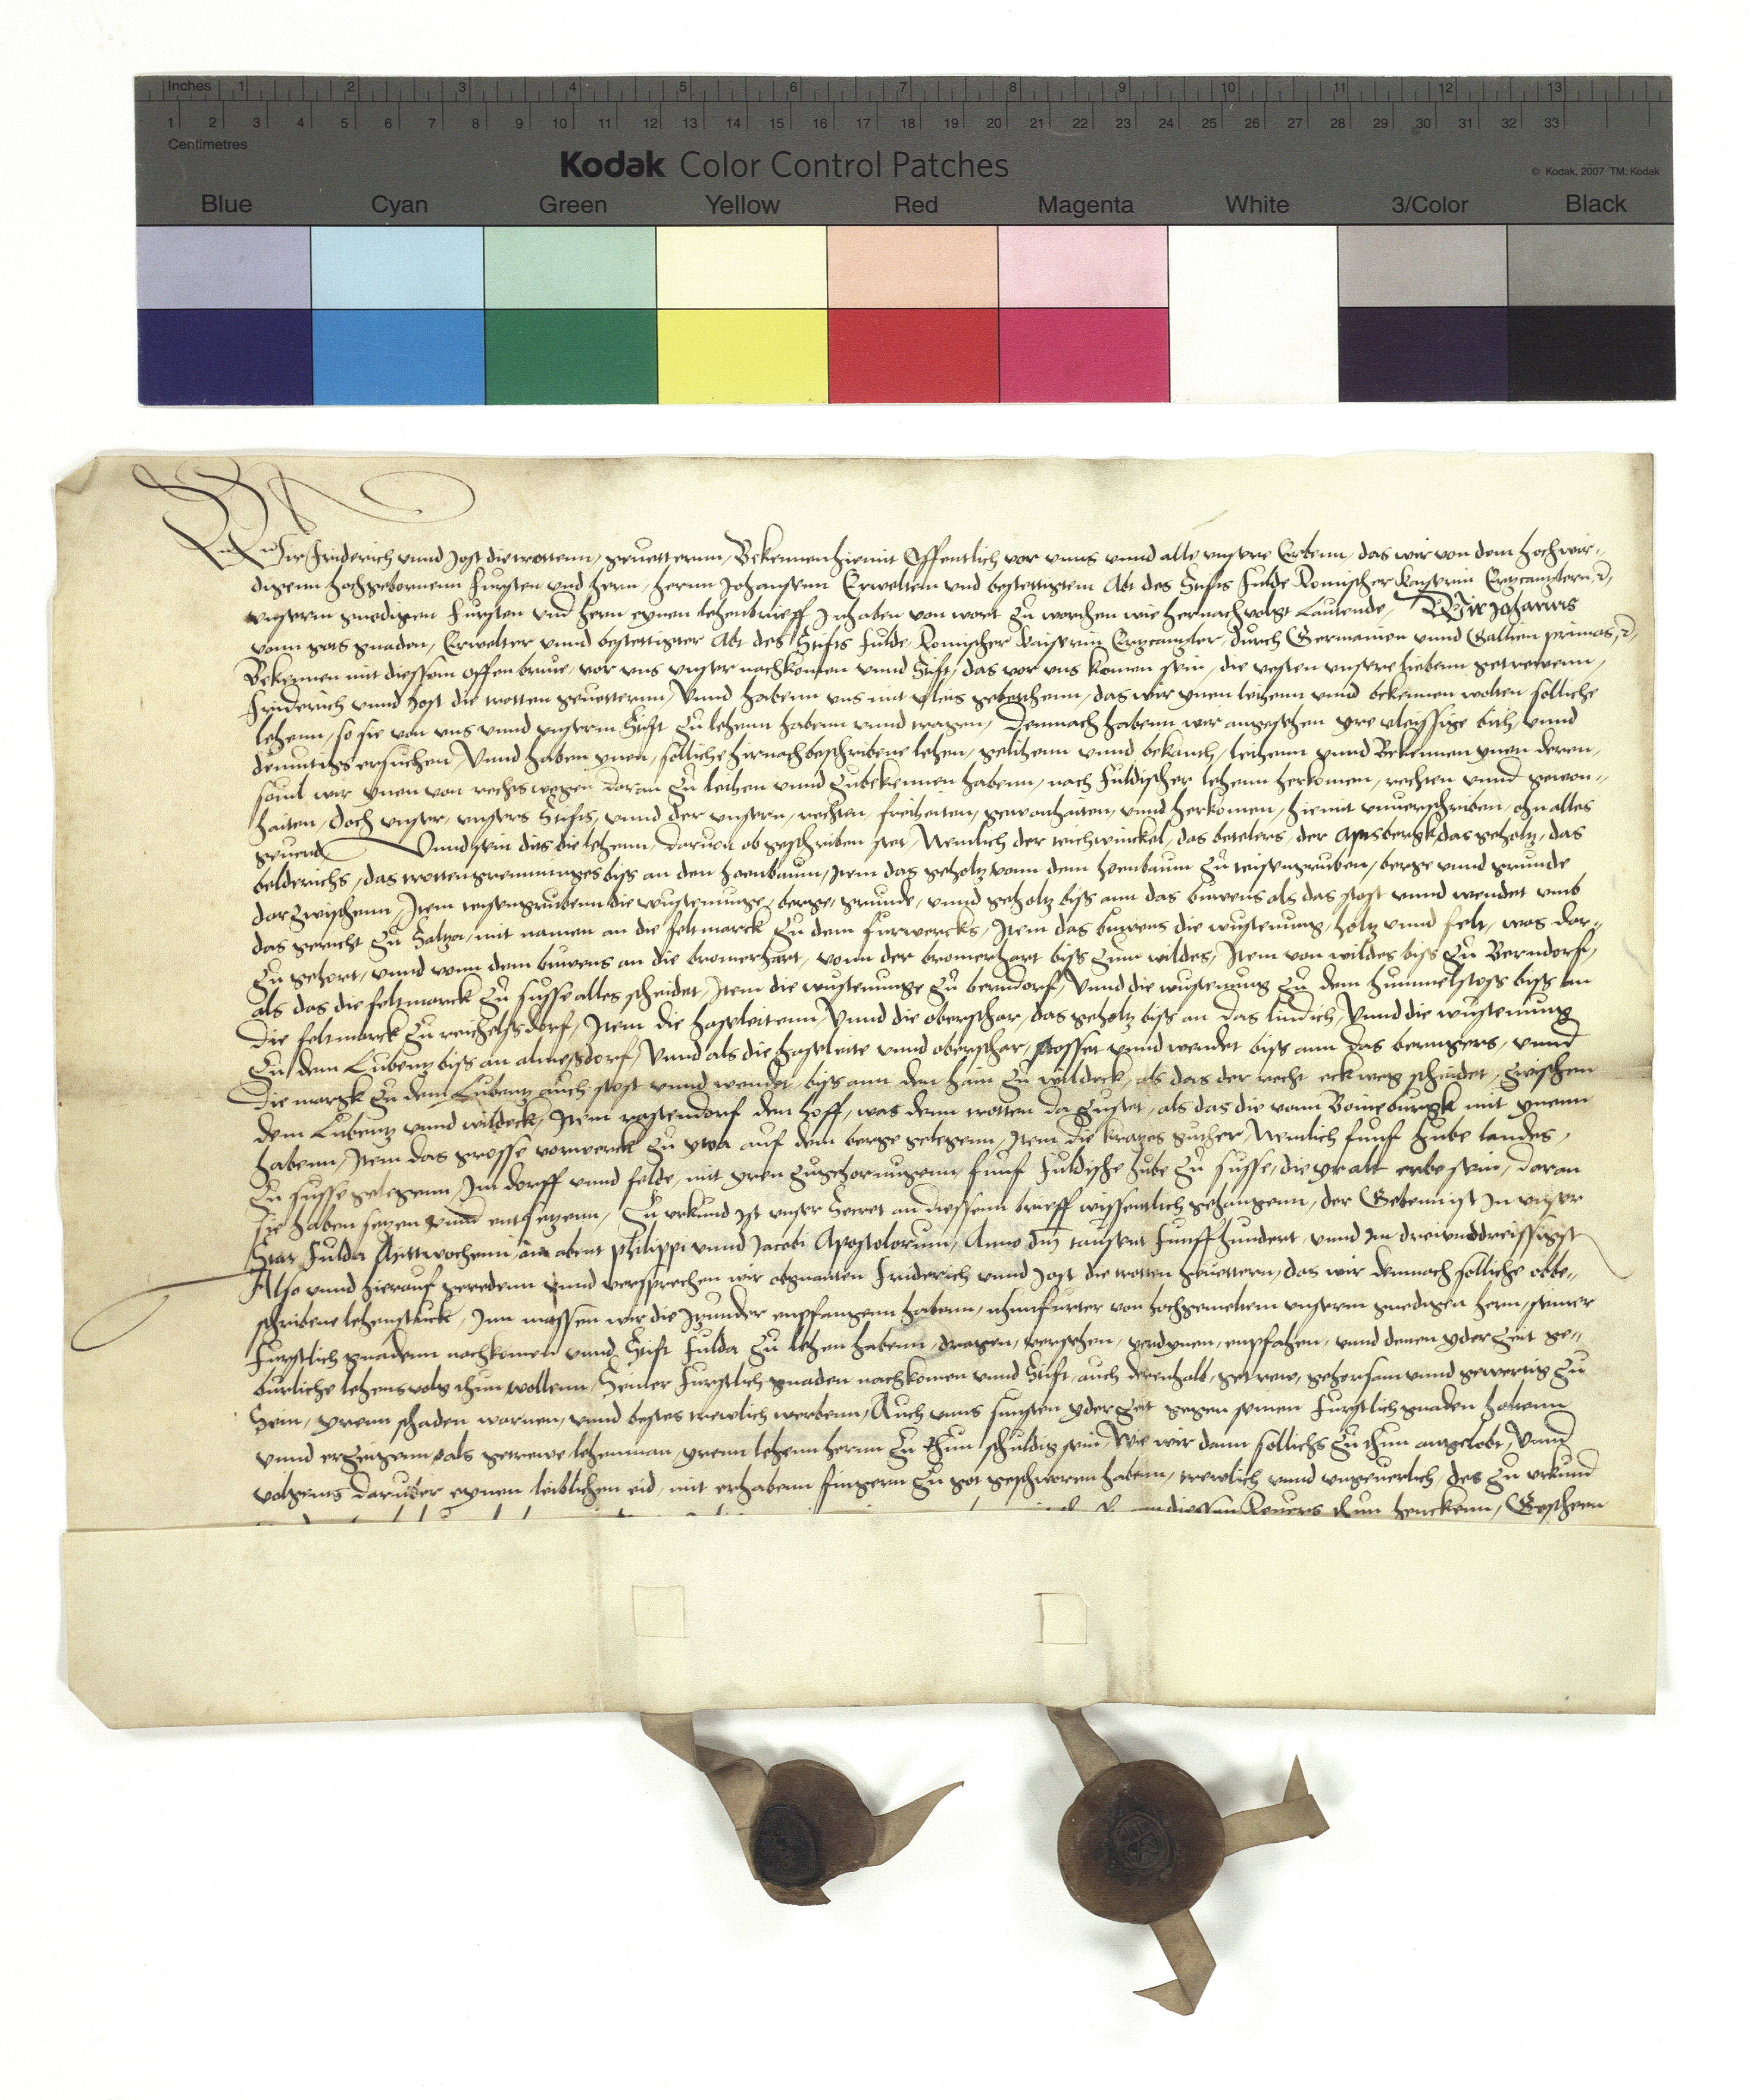 Inches 1 2 3 4 5 6 7 8 9 10 11 12 13
1 2 3 4 5 6 7 8 9 10 11 12 13 14 15 16 17 18 19 20 21 22 23 24 25 26 27 28 29 30 31 32 33
Centimetres
Kodak Color Control Patches
© Kodak, 2007 TM: Kodak
Blue Cyan Green Yellow Red Magenta White 3/Color Black
Wir Friderich vnnd Jost die trottenn, geuetternn, Bekennen hiemit Offentlich vor vnns vnnd alle vnsere Erbenn, das wir von dem hochwir-
digenn hochgebornenn Fursten vnd hern, hernn Johansenn Erweltem vnd bestettigtem Abt des Stifts Fulde Romischer Kaiserin Ertzcantzlern, ꝛc,
vnserm gnedigen Fursten vnd hern eynen lehenbrieff Inhaben von wort zu worthen wie hernach volgt Lautende, Wir Johannes
vonn gots gnaden, Erwelter vnnd bestettigter Abt des Stifts Fulde, Romischer Kaiserin Ertzcantzler, durch Germanien vnnd Gallien primas, ꝛc,
Bekennen mit diessem offen briue, vor vns vnser nachkomen vnnd Stift, das vor vns komen sein, die vesten vnsere liebenn getrewenn,
Friderich vnnd Jost die trotten geuetternn, Vnnd habenn vns mit vleis gebethenn, das wir ynen leihenn vnnd bekennen wolten solliche
lehenn, so sie von vns vnnd vnserm Stift zu lehenn habenn vnnd tragen, Demnach habenn wir angesehen yre vleissige bith, vnnd
demutigs ersuchen, Vnnd haben ynen, solliche hernachbeschribene lehen, gelihenn vnnd bekanth, leihenn vnnd Bekennen ynen deren,
souil wir ynen von rechts wegen daran zu leihen vnnd zubekennen habenn, nach Fuldischer lehenn herkomen, rechten vnnd gewon-
haiten, doch vnser, vnsers Stifts, vnnd der vnsern, rechten, freiheiten, gewonhaiten, vnnd herkomen, hiemit vnuerschriben, ohn alles
geuerd Vnnd sein dies die lehenn, daruon obgeschriben stet, Nemlich der teichwinckel, das betelers, der das geholtz, das
belderichs, das trottengremminges biss an den hoenbaum, Item das geholtz vonn dem hoenbaum zu teisengruben, berge vnnd grunde
darzwischenn, Item teysengrubenn die wustenunge, berge, grunde, vnnd geholtz biss ann das buwens als das stost vnnd wendet vmb
das gericht zu Saltza, mit namen an die feltmarck zu dem furwercks, Item das buwens die wustenung, holtz vnnd felt, was dar-
zu gehort, vnnd vonn dem buwens an die bromerhart, vonn der bromerhart biss zum wildes, Item von wildes biss zu Berndorf,
als das die feltmarck zu susse alles scheidet, Item die wustenunge zu berndorf, Vnnd die wustenung zu dem hummelstoss biss an
die feltmarck zu reichelssdorf, Item die hasleitenn, Vnnd die oberschar, das geholtz biss an das lindich, Vnnd die wustenung
zu dem Lubentz biss an almessdorf, Vnnd als die hasleite vnnd oberschar, stosset vnnd wendet biss ann das beringers, vnnd
die margk zu dem Lubentz auch stost vnnd wendet, biss ann den hain zu wildeck, als das der recht eck weg scheidet, zwischen
dem Lubentz vnnd wildeck, Item rastendorf den hoff, was denn trotten da zustet, als das die vonn Boineburgk mit ynenn
habenn, Item das grosse vorwerck zu ytva auf dem berge gelegenn, Item die kratzes guther, Nemlich funf hube landes,
zu susse gelegenn, Im dorff vnnd felde, mit yren zugehorungenn, funf fuldische hube zu susse, die yr alt erbe sein, daran
sie haben setzen vnnd entsetzenn, Zu vrkund ist vnser Secret an diessenn brieff wissentlich gehangenn, der Geben ist In vnser
Stat Fulda Mittwochenn am abent philippi vnnd Jacobi Apostolorum, Anno dni tausent funffhundert, vnnd Im dreiunddreissigst
Also vnnd hierauf geredenn vnnd versprechen wir obgnanten Friderich vnnd Jost die trotten geuettern, das wir demnach solliche obbe-
schribene lehenstuck, Inn massen wir die Itzunder empfangenn habenn, von hochgemeltem vnserm gnedigen hern, seiner
Furstlich gnadenn nachkomen vnnd Stift Fulda zu lehen habenn, dragen, versehen, verdynen, empfahen, vnnd denen yder zeit ge-
burliche lehensvolg thun wollenn, Seiner Furstlich gnaden nachkomen vnnd Stift, auch derenhalb, getrew, gehorsam vnnd gewertig zu
Sein, yrenn schaden warnen, vnnd bestes trewlich werbenn, Auch vnns sunsten yder zeit gegen seinen Furstlich gnaden haltenn
vnnd ertzeigenn, als getrewe lehenman, yrenn lehenn herrn zu thun schuldig sein, Wie wir dann sollichs zu thun angelobt, Vnnd
volgents daruber eynen leiblichen eid, mit erhabenn fingern zu got geschworen habenn, trewlich vnnd vngeuerlich, des zu vrkund
diessen Reuers thun henckenn, Gescheen